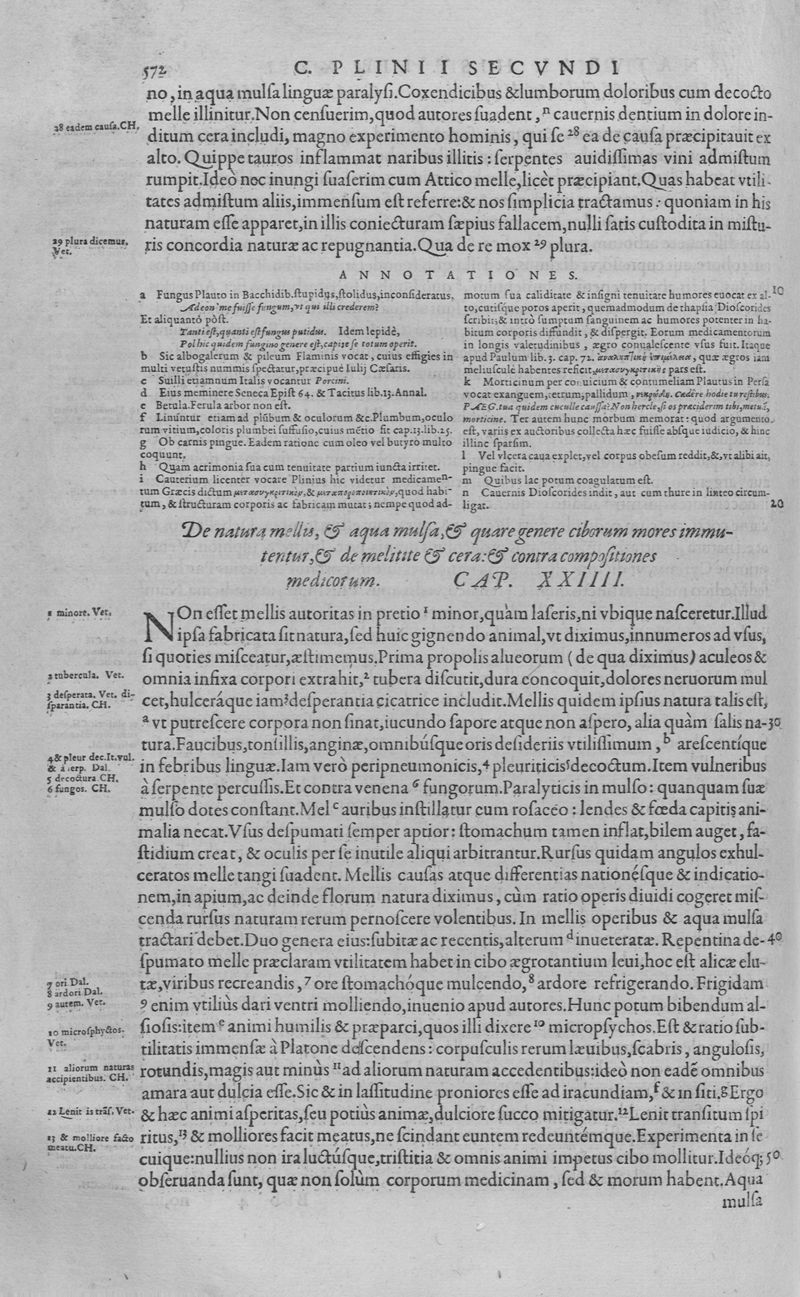 572 C. PLINII SECVNDI
no, in aqua mulsa linguæ paralysi. Coxendicibus & lumborum doloribus cum decocto
melle illinitur. Non censuerim, quod autores suadent, ⁿ cauernis dentium in dolore in-
28 eadem causa. CH.
ditum cera includi, magno experimento hominis, qui se ²⁸ ea de causa præcipitauit ex
alto. Quippe tauros inflammat naribus illitis: serpentes auidissimas vini admistum
rumpit. Ideò nec inungi suaserim cum Attico melle, licèt præcipiant. Quas habeat vtili-
tates admistum aliis, immensum est referre: & nos simplicia tractamus: quoniam in his
naturam esse apparet, in illis coniecturam sæpius fallacem, nulli satis custodita in mistu-
29 plura dicemus.
Vet.
ris concordia naturæ ac repugnantia. Qua de re mox ²⁹ plura.
ANNOTATIONES.
a Fungus Plauto in Bacchidib. stupidus, stolidus, inconsideratus.
Adeon' me fuisse fungum, vt qui illi crederem?
Et aliquantò pòst.
Tanti est, quanti est fungus putidus. Idem lepidè,
Pol hic quidem fungino genere est, capite se totum operit.
b Sic albogalerum & pileum Flaminis vocat, cuius effigies in
multi vetustis nummis spectatur, præcipuè Iulij Cæsaris.
c Suilli etiamnum Italis vocantur Porcini.
d Eius meminere Seneca Epist 64. & Tacitus lib. 13. Annal.
e Betula. Ferula arbor non est.
f Linuntur etiam ad plũbum & oculorum &c. Plumbum, oculo
rum vitium, coloris plumbei suffusio, cuius mẽtio fit cap. 13. lib. 25.
g Ob carnis pingue. Eadem ratione cum oleo vel butyro multo
coquunt.
h Quam acrimonia sua cum tenuitate partium iuncta irritet.
i Cauterium licenter vocare Plinius hic videtur medicamen-
tum Græcis dictum μετασυγκριτικὸν, & μεταποροποιητικὸν, quod habi-
tum, & structuram corporis ac fabricam mutat; nempe quod ad-
motum sua caliditate & insigni tenuitate humores euocat ex al- 10
to, cutisque poros aperit, quemadmodum de thapsia Dioscorides
scribit; & intrò sumptum sanguinem ac humores potenter in ha-
bitum corporis diffundit, & dispergit. Eorum medicamentorum
in longis valetudinibus, ægro conualescente vsus fuit. Itaque
apud Paulum lib. 3. cap. 72. quæ ægros iam
meliusculè habentes reficit, μετασυγκριτικῆς pars est.
k Morticinum per conuicium & contumeliam Plautus in Persa
vocat exanguem, tetrum, pallidum, Cædere hodie tu restibus.
PÆG. tua quidem cuculle caussa? Non hercle, si os præciderim tibi, metuã,
morticine. Ter autem hunc morbum memorat: quod argumento
est, variis ex auctoribus collecta hæc fuisse absque iudicio, & hinc
illinc sparsim.
l Vel vlcera caua explet, vel corpus obesum reddit, &, vt alibi ait,
pingue facit.
m Quibus lac potum coagulatum est.
n Cauernis Dioscorides indit, aut cum thure in linteo circum-
ligat. 20
De natura mellis, & aqua mulsa, & quare genere ciborum mores immu-
tentur, & de melitite & cera: & contra compositiones
medicorum. CAP. XXIIII.
1 minore. Vet.
NOn esset mellis autoritas in pretio ¹ minor, quàm laseris, ni vbique nasceretur. Illud
ipsa fabricata sit natura, sed huic gignendo animal, vt diximus, innumeros ad vsus,
si quoties misceatur, æstimemus. Prima propolis alueorum (de qua diximus) aculeos &
2 tubercula. Vet.
omnia infixa corpori extrahit, ² tubera discutit, dura concoquit, dolores neruorum mul
3 desperata. Vet. di-
sparantia. CH.
cet, hulceráque iam ³ desperantia cicatrice includit. Mellis quidem ipsius natura talis est,
ᵃ vt putrescere corpora non sinat, iucundo sapore atque non aspero, alia quàm salis na- 30
tura. Faucibus, tonsillis, anginæ, omnibúsque oris desideriis vtilissimum, ᵇ arescentíque
4 & pleur dec. It. vul.
& à serp. Dal.
5 decoctura CH.
6 fungos. CH.
in febribus linguæ. Iam verò peripneumonicis, ⁴ pleuriticis ⁵ decoctum. Item vulneribus
à serpente percussis. Et contra venena ⁶ fungorum. Paralyticis in mulso: quanquam suæ
mulso dotes constant. Mel ᶜ auribus instillatur cum rosaceo: lendes & fœda capitis ani-
malia necat. Vsus despumati semper aptior: stomachum tamen inflat, bilem auget, fa-
stidium creat, & oculis per se inutile aliqui arbitrantur. Rursus quidam angulos exhul-
ceratos melle tangi suadent. Mellis causas atque differentias nationésque & indicatio-
nem, in apium, ac deinde florum natura diximus, cùm ratio operis diuidi cogeret mis-
cenda rursus naturam rerum pernoscere volentibus. In mellis operibus & aqua mulsa
tractari debet. Duo genera eius: subitæ ac recentis, alterum ᵈ inueteratæ. Repentina de- 40
spumato melle præclaram vtilitatem habet in cibo ægrotantium leui, hoc est alicæ elu-
7 ori Dal.
8 ardori Dal.
9 autem. Vet.
tæ, viribus recreandis, ⁷ ore stomachóque mulcendo, ⁸ ardore refrigerando. Frigidam
⁹ enim vtiliùs dari ventri molliendo, inuenio apud autores. Hunc potum bibendum al-
10 microsphyctos.
Vet.
siosis: item ᵉ animi humilis & præparci, quos illi dixere ¹⁰ micropsychos. Est & ratio sub-
tilitatis immensæ à Platone descendens: corpusculis rerum læuibus, scabris, angulosis,
11 aliorum naturas
accipientibus. CH.
rotundis, magis aut minùs ¹¹ ad aliorum naturam accedentibus: ideò non eadẽ omnibus
amara aut dulcia esse. Sic & in lassitudine proniores esse ad iracundiam, ᶠ & in siti. ᵍ Ergo
12 Lenit is trãs. Vet.
& hæc animi asperitas, seu potiùs animæ, dulciore succo mitigatur. ¹² Lenit transitum spi
13 & molliore facto
meatu. CH.
ritus, ¹³ & molliores facit meatus, ne scindant euntem redeuntémque. Experimenta in se
cuique: nullius non ira luctúsque, tristitia & omnis animi impetus cibo mollitur. Ideóq; 50
obseruanda sunt, quæ non solùm corporum medicinam, sed & morum habent. Aqua
mulsa